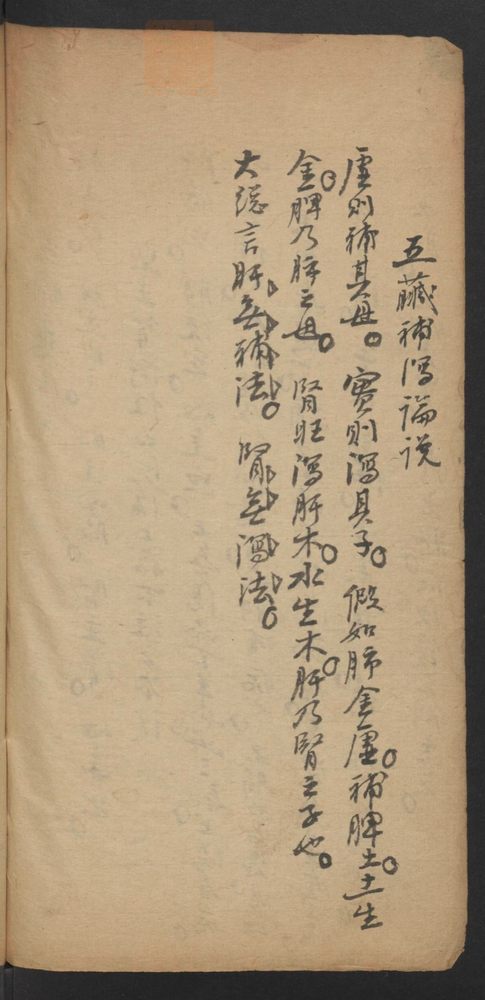 五臟補瀉論说
虛則補其母。實則瀉其子。假如肺金虛。補脾土。土生
金。脾乃肺之母。腎旺瀉肝木。水生木。肝乃腎之子也。
大總言肝無補法。腎無瀉法。